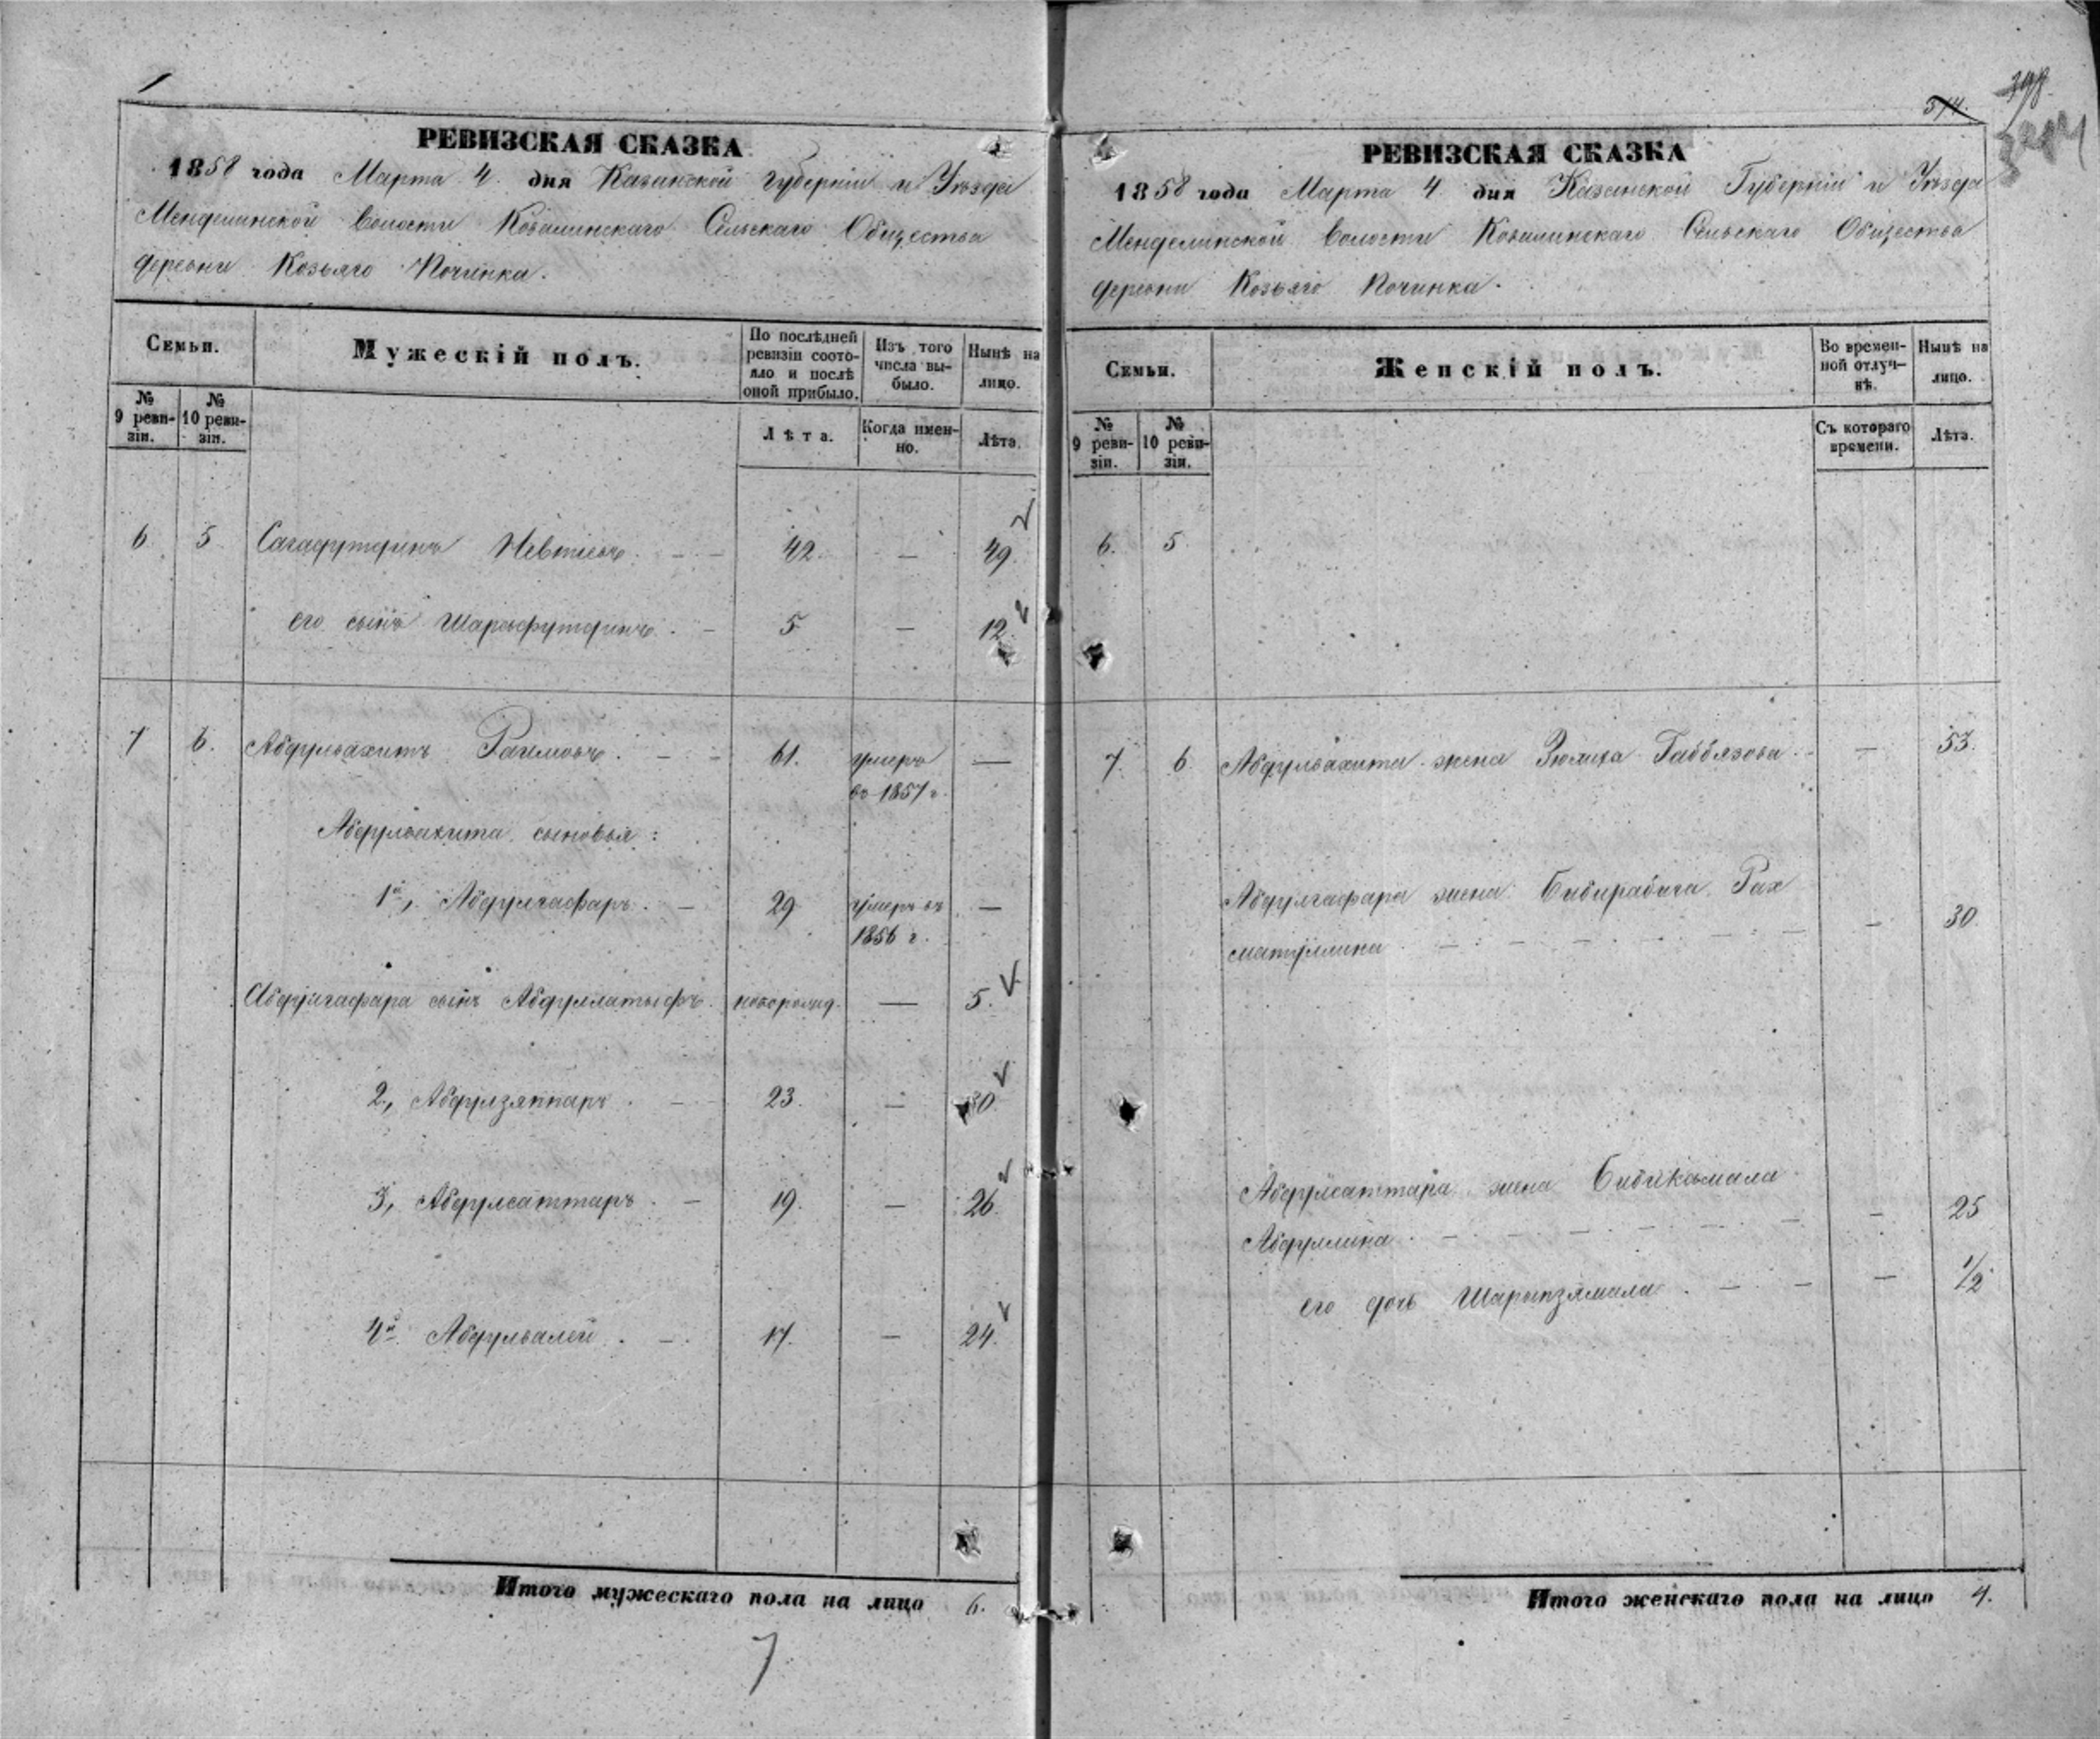 РЕВИЗСКАЯ СКАЗКА
1858 года Марта 4 дня Казанской губерніи и Уѣзда
Менделинской волости Ковалинскаго Сельскаго Общества
деревни Козьяго Починка.
Семьи.
Мужескій полъ.
По послѣдней ревизіи состояло и послѣ оной прибыло.
Изъ того числа выбыло.
Нынѣ на лицо.
№ 9 ревизіи.
№ 10 ревизіи.
Лѣта.
Когда именно.
Лѣта.
6 5 Сагафутдинъ 42. — 49
его сынъ Шарафутдинъ. — 5 — 12.
7 6. Абдулвахитъ Рагимовъ. — — 61. умеръ —
въ 1857 г.
Абдулвахита сыновья:
1й, Абдулгафаръ. — 29 умеръ въ —
1856 г.
Абдулгафара сынъ Абдуллатыфъ. новорожд. — 5.
2, Абдулзяппаръ. — 23. — 30.
3, Абдулсаттаръ. — 19. — 26.
4й Абдулвалей. — 17. — 24.
Итого мужескаго пола на лицо 6.
7
514.
398
РЕВИЗСКАЯ СКАЗКА
1858 года Марта 4 дня Казанской Губерніи и Уѣзда
Менделинской волости Ковалинскаго Сельскаго Общества
деревни Козьяго Починка.
Семьи.
Женскій полъ.
Во временной отлучкѣ.
Нынѣ на лицо.
№ 9 ревизіи.
№ 10 ревизіи.
Съ котораго времени.
Лѣта.
6. 5
7. 6 Абдулвахита жена Зюлиха Габбязова. — 53.
Абдулгафара жена Бибирабига Рах
матуллина. — — — — 30
Абдулсаттара жена Бибикамала
Абдуллина. — — — — 25
его дочь Шарыпзямала. — — — 1/2
Итого женскаго пола на лицо 4.